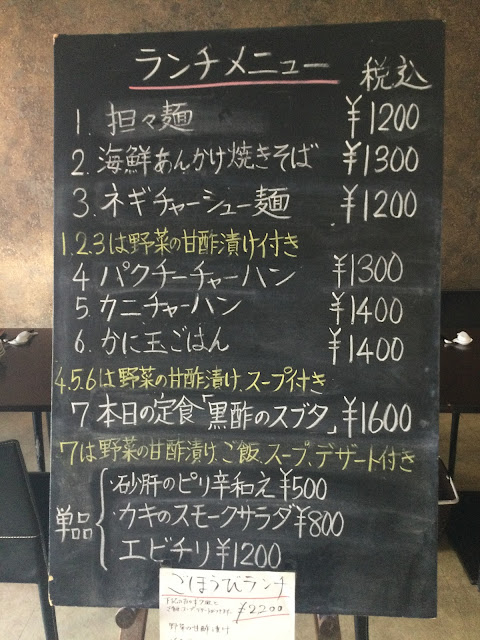 ランチメニュー 税込
1. 担々麺 ¥1200
2. 海鮮あんかけ焼きそば ¥1300
3. ネギチャーシュー麺 ¥1200
1.2.3は野菜の甘酢漬け付き
4 パクチーチャーハン ¥1300
5. カニチャーハン ¥1400
6. かに玉ごはん ¥1400
4.5.6は野菜の甘酢漬け、スープ付き
7 本日の定食「黒酢のスブタ」¥1600
7は野菜の甘酢漬け、ご飯、スープ、デザート付き
単品
・砂肝のピリ辛和え ¥500
・カキのスモークサラダ ¥800
エビチリ ¥1200
ごほうびランチ
¥2200
野菜の甘酢漬け